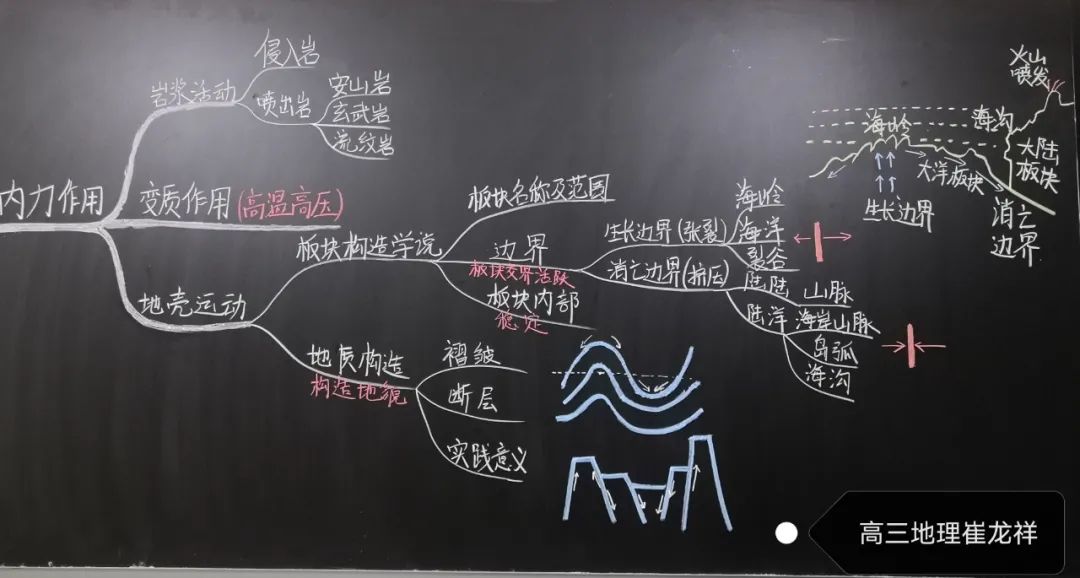 内力作用
岩浆活动
侵入岩
喷出岩
安山岩
玄武岩
流纹岩
变质作用(高温高压)
地壳运动
板块构造学说
板块名称及范围
边界
板块交界活跃
生长边界(张裂)
海岭
海洋
裂谷
消亡边界(挤压)
陆陆
山脉
陆洋
海岸山脉
岛弧
海沟
板块内部
稳定
地质构造
构造地貌
褶皱
断层
实践意义
火山
喷发
海岭
海沟
大洋板块
大陆
板块
生长边界
消亡
边界
高三地理崔龙祥